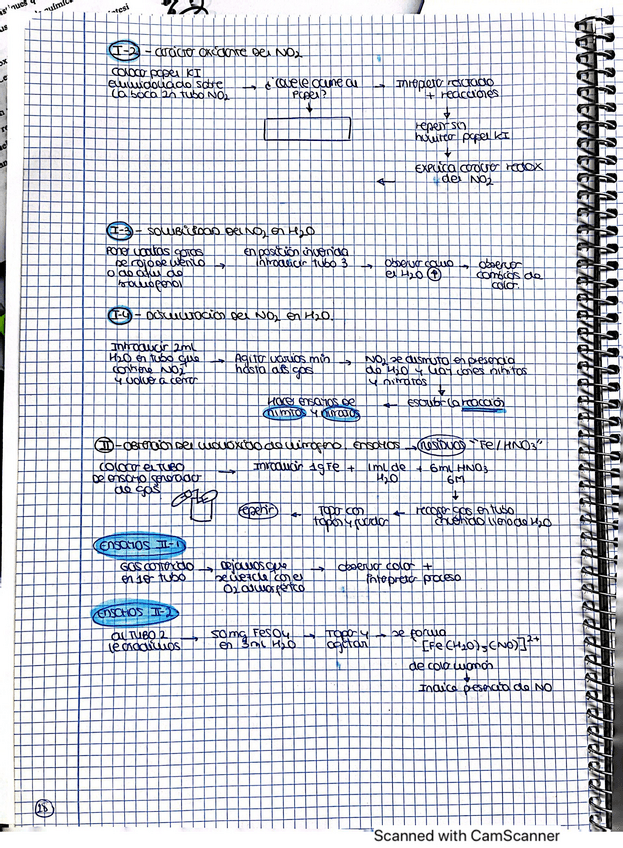 I-2 - carácter oxidante del NO2
Colocar papel KI → ¿Qué le ocurre al → Interpreta resultado
humedecido sobre papel? + reacciones
la boca en tubo NO2
repetir sin
humectar papel KI
explica carácter redox
del NO2
I-3 - solubilidad del NO2 en H2O
Poner varias gotas → en posición invertida → observar como → observar
de rojo de metilo introducir tubo 3 el H2O ↑ cambios de
o de azul de color
bromofenol
I-4 - del NO2 en H2O.
Introducir 2ml
H2O en tubo que → Agitar varios min → NO2 se en presencia
contiene NO2 hasta gas de H2O y iones nitritos
y volver a cerrar y nitratos
Hacer ensayos de ← escribir la reacción
nitritos y nitratos
II - obtención del monóxido de nitrógeno. Ensayos → Residuos "Fe/HNO3"
Colocar el tubo → Introducir 1g Fe + 1ml de + 6ml HNO3
de ensayo generador H2O 6M
de gas
repetir ← Tapar con ← recoger gas en tubo
tapón y invertido lleno de H2O
ENSAYOS II-1
Gas contenido → dejamos que → observar color +
en 1er tubo se mezcle con el interpreta proceso
O2 atmosférico
ENSAYOS II-2
al TUBO 2 → 50mg FeSO4 → Tapar y → se forma
le añadimos en 3ml H2O agitar [Fe(H2O)5(NO)]2+
de color marrón
Indica presencia de NO
18
Scanned with CamScanner